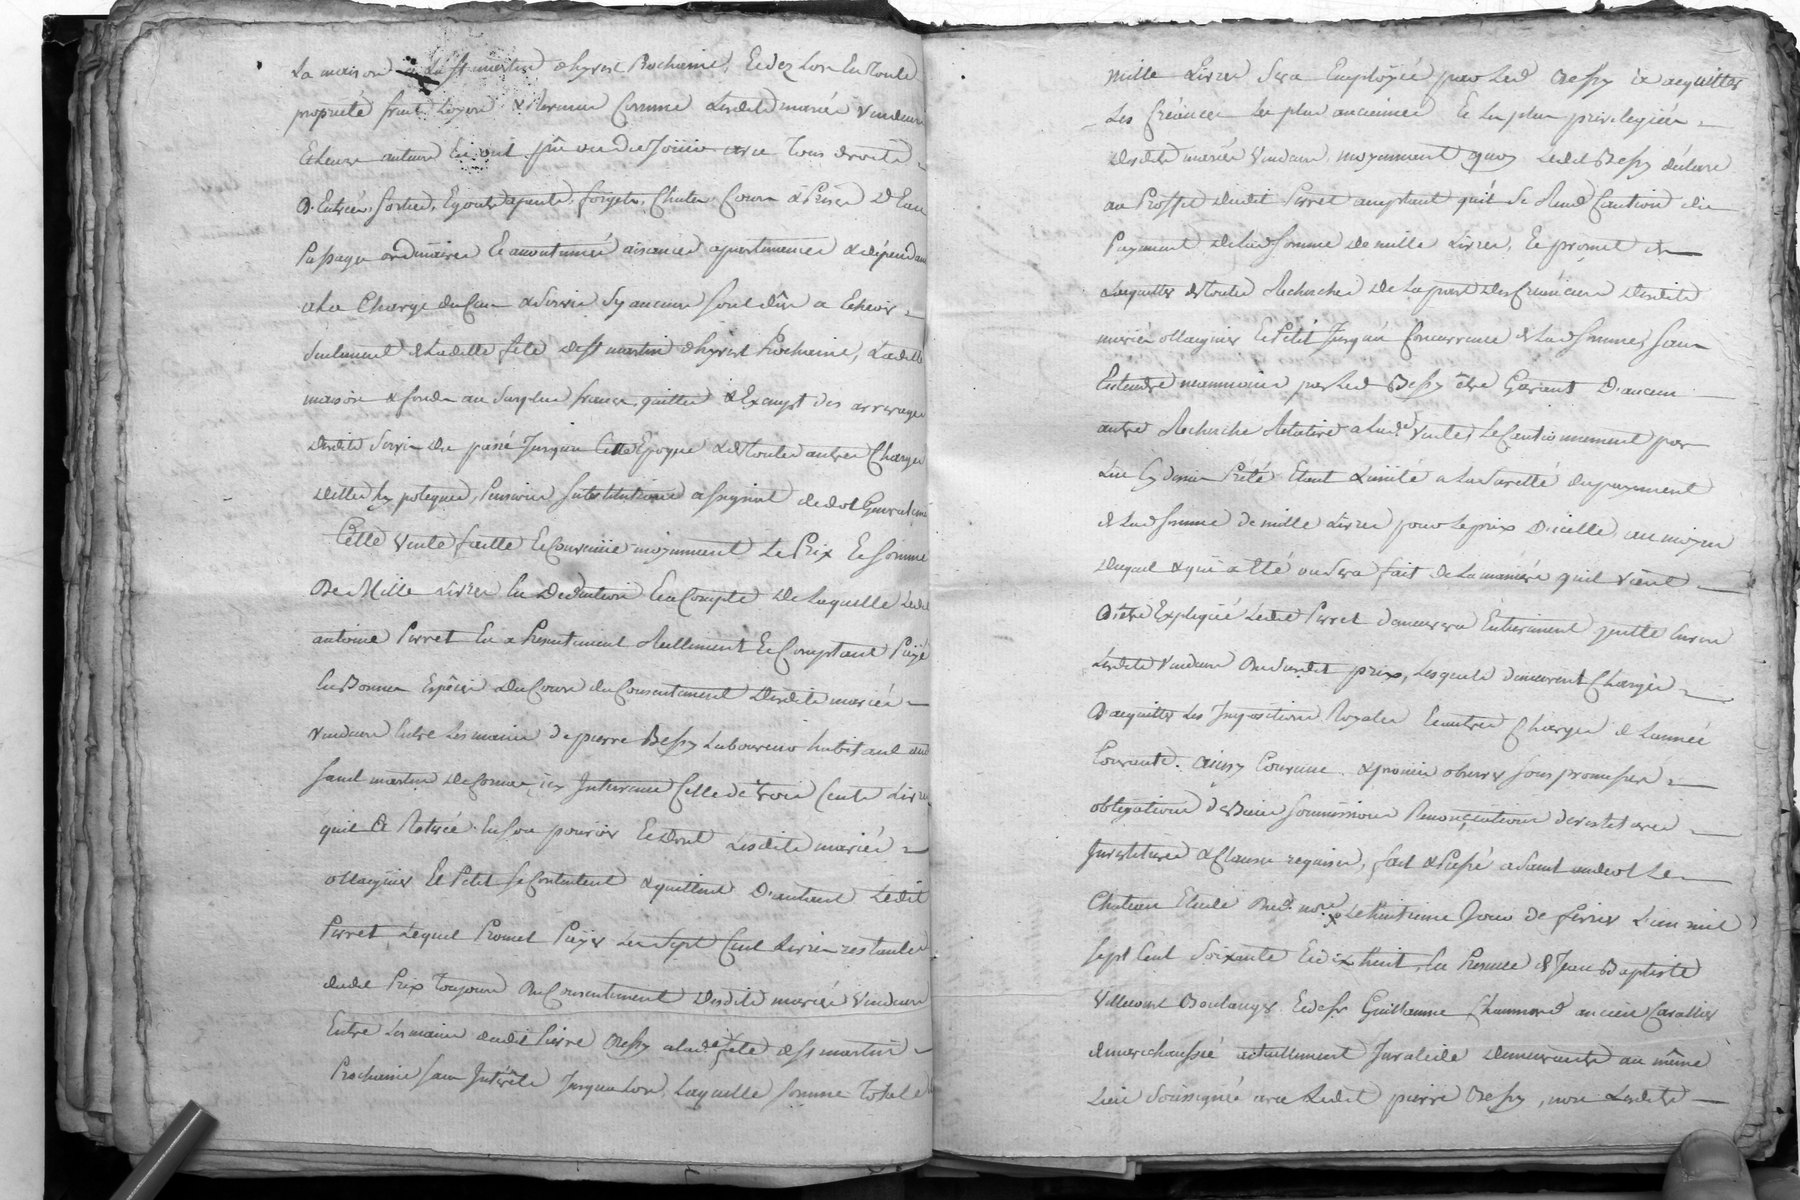 La maison a la st martin d'hyver Prochaine, Et dez Lors En toute
propriété fruits Loyers & Revenus Comme Lesdits mariés Vendeurs
Et Leurs auteurs En ont jöui ou du Joüir avec tous droits
D'Entrées, sorties, Egouts, apants, forgets, Chutes, Cours & Prises D'Eau
Passages ordinaires Et acoutumés aisances apartenances & dépendances
a La Charge du Cens & Servis sy aucuns sont dûs a Echeoir
Seulement a Laditte fête de st martin d'hyver Prochaine, Ladite
maison & fonds au Surplus francs, quittes & Exempt des arrerages
desdits Servis du passé Jusqu'a Cette Epoque & de toutes autres Charges
dettes hypoteques, Pensions Substitutions assignat de dot Generalement
Cette Vente faitte Et Convenüe moyennant Le Prix Et Somme
De Mille Livres En Deduction Et a Compte De Laquelle Ledit
antoine Perret En a Presentement Reellement Et Comptant Payé
En Bonnes Espèces du Cours du Consentement desdits mariés
Vendeurs Entre Les mains de pierre Bessy Laboureur habitant au
saint martin de Cornas, icy Intervenu Celle de trois Cents Livres
quil a Retirée En son pouvoir Et dont Lesdits mariés
ollagnier Et Petit se Contentent & quittent D'autant Ledit
Perret, Lequel Promet Payer Les Sept Cent Livres restantes
dudit Prix toujours du Consentement desdits mariés Vendeurs
Entre Les mains dudit Pierre Bessy a Lade fête de st martin
Prochaine sans Intérêts Jusqu'a Lors, Laquelle somme totale de
mille Livres Sera Employée par Led Bessy a acquitter
Les Créances Les plus anciennes Et Les plus privilegiées
desdits mariés Vendeurs, moyennant quoy Ledit Bessy déclare
au Proffit dudit Perret acceptant qu'il se Rend Caution du
Payement de Lad somme de mille Livres, Et promet de
L'acquitter de toutes Recherches de La part des Créanciers desdits
mariés ollagnier Et Petit Jusqu'a Concurrence de Lad somme, sans
Entendre neanmoins par Led Bessy être Garant D'aucune
autre Recherche Relative a Lade Vente, Le Cautionnement par
Lui Cy dessus Prêté Etant Limité a La Suretté du payement
de Lad somme de mille Livres pour Le prix D'icelle, au moyen
duquel & qui a été ou Sera fait de La maniére quil vient
D'être Expliqué Ledit Perret demeurera Entierement quitte Envers
Lesdits Vendeurs Dududit prix, Lesquels demeurent Chargés
D'acquitter Les Impositions Royales Et autres Charges de Lannée
Courante. ainsy Convenu & promis observer sous promesses
obligations de Biens soummissions Renonciations devestitures
Investitures & Clauses requises, fait & Passé a Saint andeol Le
Chateau Etude Dud. nore Le huitieme Jour de fevrier L'an mil
sept Cent Soixante Et dix huit, En Presence de Jean Baptiste
Villecourt Boulanger Et de sr Guillaume Chaumond ancien Cavallier
de marechaussée actuellement Invalide demeurants au même
Lieu Soussignés avec Ledit pierre Bessy, non Lesdits